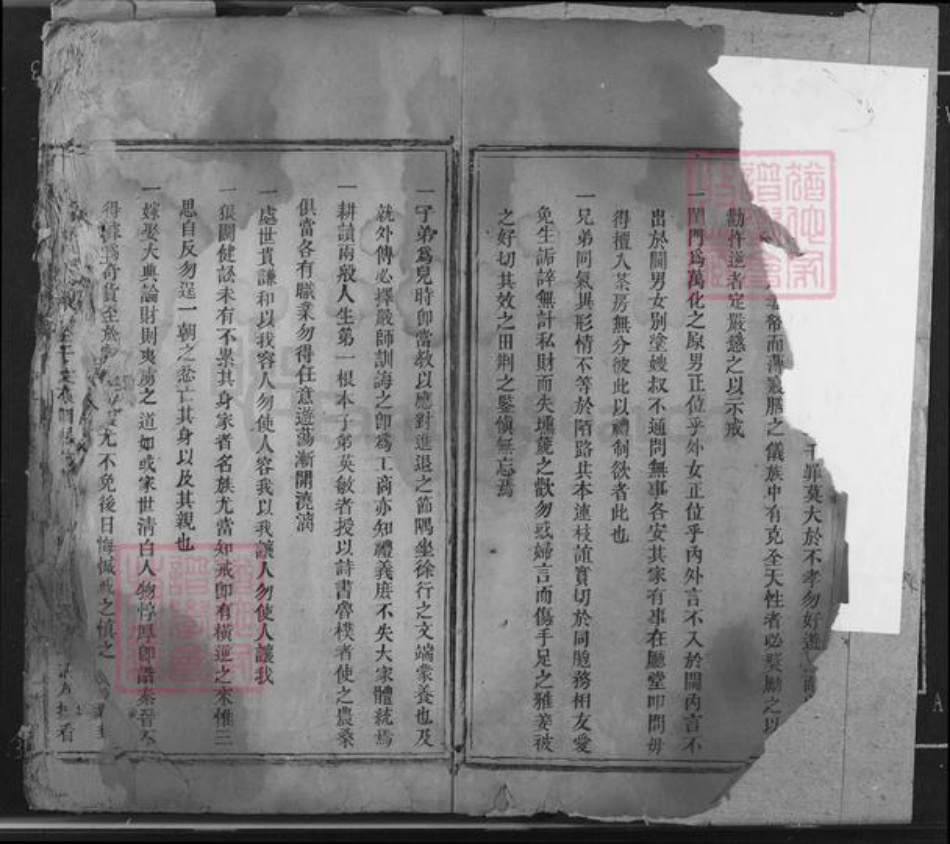 罪莫大於不孝勿好遊
帝而薄 之儀族中有克全天性者必奬勵之以
勸忤逆者定嚴懲之以示戒
一閨門爲萬化之原男正位乎外女正位乎內外言不入於閫內言不
出於閫男女別塗嫂叔不通問無事各安其家有事在廳堂叩問毋
得擅入茶房無分彼此以禮制欲者此也
一兄弟同氣異形情不等於陌路共本連枝誼實切於同胞務相友愛
免生詬誶無計私財而失壎篪之歡勿惑婦言而傷手足之雅姜被
之好切其效之田荆之鑒愼無忘焉
一子弟爲兒時卽當敎以應對進退之節隅坐徐行之文端蒙養也及
就外傳必擇嚴師訓誨之卽爲工商亦知禮義庻不失大家體統焉
一耕讀兩般人生第一根本子弟英敏者授以詩書魯樸者使之農桑
俱當各有職業勿得任意遊蕩漸開澆漓
一處世貴謙和以我容人勿使人容我以我讓人勿使人讓我
一狠鬭健訟未有不累其身家者名族尤當知戒卽有橫逆之來惟三
思自反勿逞一朝之忿亡其身以及其親也
一嫁娶大典論財則夷虜之道如或家世淸白人物惇厚卽諧秦晉不
得 爲奇貨至於 尤不免後日悔慽戒之愼之
看